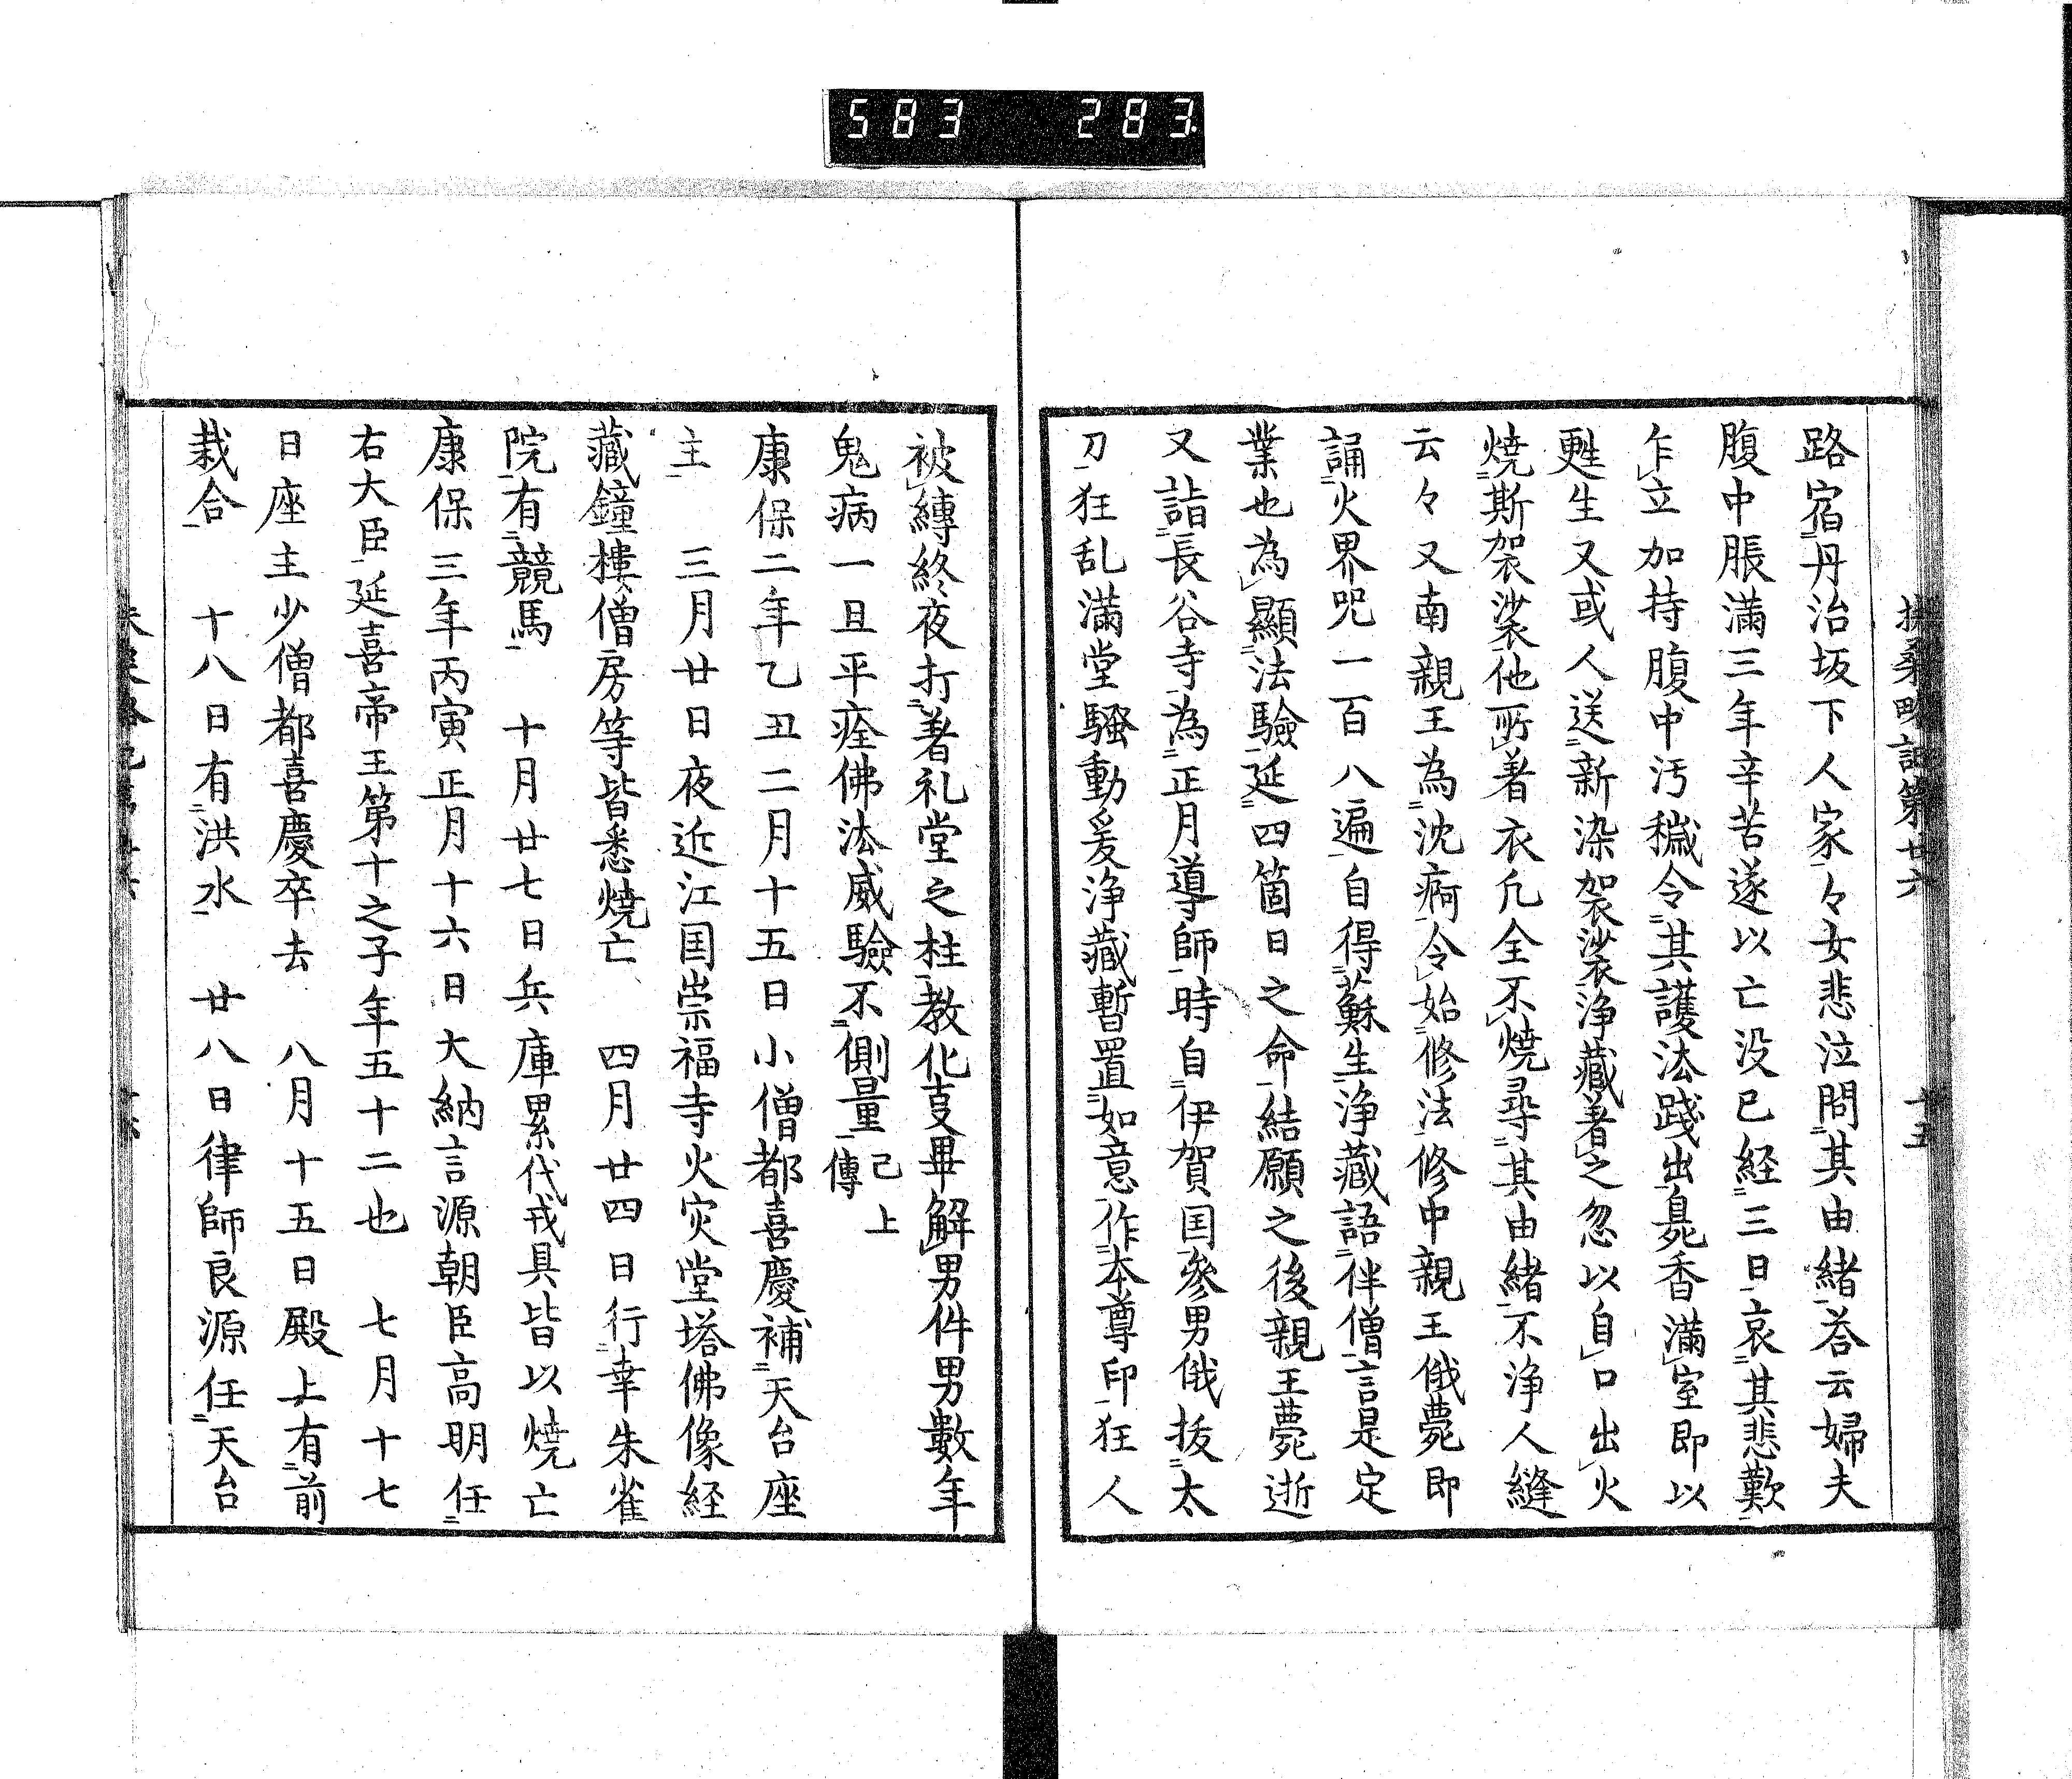 583 283
扶桑略記第廿六 十五
路宿丹治坂下人家々女悲泣問其由緒荅云婦夫
腹中脹滿三年辛苦遂以亡没已経三日哀其悲歎
乍立加持腹中汚穢令其護法踐出臰香滿室即以
甦生又或人送新染袈裟浄藏著之忽以自口出火
焼斯袈裟他所著衣凢全不焼尋其由緒不浄人縫
云々又南親王為沈痾令始修法修中親王俄薨即
誦火界咒一百八遍自得蘇生浄藏語伴僧言是定
業也為顯法驗延四箇日之命結願之後親王薨逝
又詣長谷寺為正月導師時自伊賀国參男俄拔太
刀狂乱滿堂騒動爰浄藏暫置如意作本尊印狂人
被縛終夜打著礼堂之柱教化㕝畢解男件男數年
鬼病一旦平痊佛法威驗不側量已上傳
康保二年乙丑二月十五日小僧都喜慶補天台座
主 三月廿日夜近江国崇福寺火灾堂塔佛像経
藏鐘樓僧房等皆悉焼亡 四月廿四日行幸朱雀
院有競馬 十月廿七日兵庫累代戎具皆以焼亡
康保三年丙寅正月十六日大納言源朝臣高明任
右大臣延喜帝王第十之子年五十二也 七月十七
日座主少僧都喜慶卒去 八月十五日殿上有前
栽合 十八日有洪水 廿八日律師良源任天台